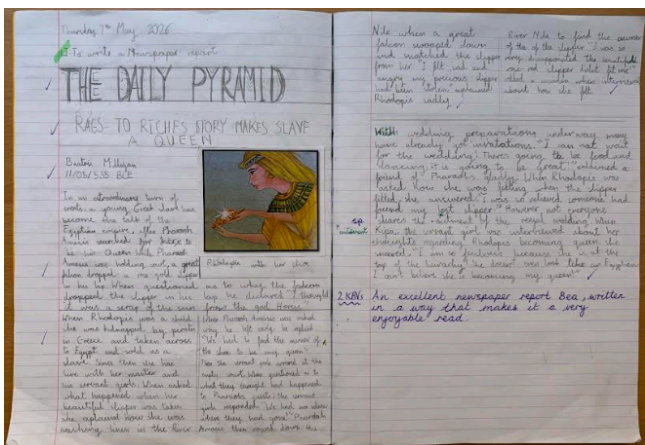 Thursday 7th May 2026
To write a Newspaper report
THE DAILY PYRAMID
RAGS-TO RICHES STORY MAKES SLAVE
A QUEEN
Beatrix Milligan
BCE
In an extraordinary turn of
events a young Greek slave has
become the talk of the
Egyptian empire, after Pharaoh
Amasis searched far wide to
his Queen. While Pharaoh
Amasis was holding court, a great
falcon dropped a rose gold slipper
in his lap. When questioned
dropped the slipper in his
Rhodopis with her shoe
as to why the falcon
lap he declared "I thought
it was a sign of the sun
from the god Horus"
When Rhodopis was a child
she was kidnapped by pirates
in Greece and taken across
to Egypt and sold as a
slave. Since then she has
lived with her master and
his servant girls. When asked
what happened when her
beautiful slipper was taken
she explained how she was
washing linen in the River
When Pharaoh Amasis was asked
why he left early he replied
"We had to find the owner of
the shoe to be my queen"
Then the servant girls
court. When questioned on to
what they thought had happened
to Pharaoh the servant
girls responded "We had no idea
where they had gone". Pharaoh
Amasis then down the
Nile when a great
falcon swooped down
and snatched the slipper
from her. "I felt sad and
angry my precious slipper
had been taken" explained
Rhodopis sadly.
River Nile to find the owner
of the slipper. "I was so
very disappointed the beautiful
rose red slipper didn't fit me"
when interviewed
about how she felt.
With wedding preparations underway many
have already got invitations. "I can not wait
for the wedding! There's going to be food and
dancing, it is going to be great!" exclaimed a
friend of Pharaoh's gladly. When Rhodopis was
asked how she was feeling when the slipper
fitted, she answered "I was so relieved someone had
found my lost slipper". However not everyone
shares the excitement of the royal wedding. When
Kipa the servant girl was interviewed about her
thoughts regarding Rhodopis becoming queen she
answered, "I am so jealous because she is at the
top of the hierarchy. She doesn't even look like an Egyptian
I can't believe she is becoming my queen!"
sp
2 KBVs
An excellent newspaper report Bea, written
in a way that makes it a very
enjoyable read.